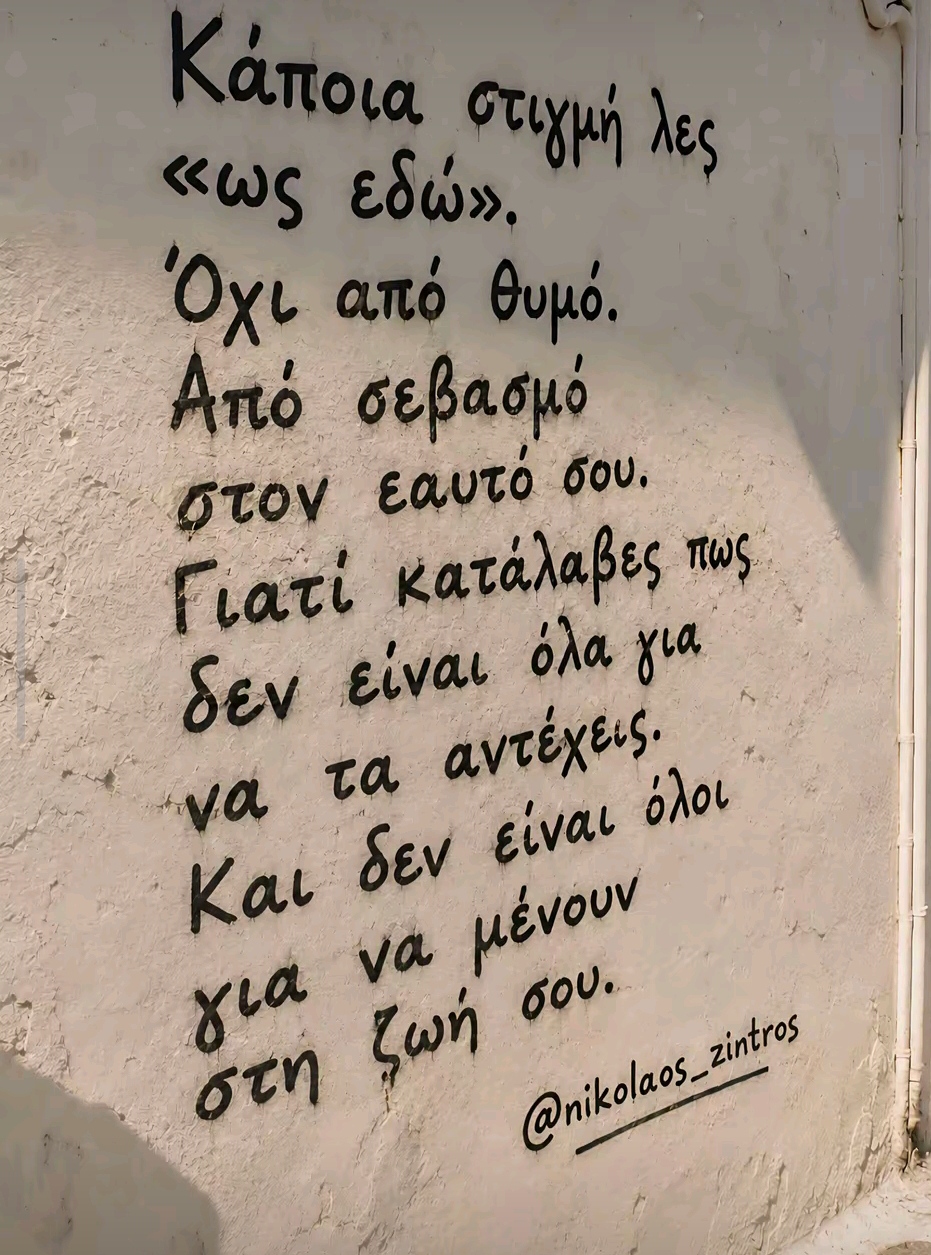 Κάποια στιγμή λες
«ως εδώ».
Όχι από θυμό.
Από σεβασμό
στον εαυτό σου.
Γιατί κατάλαβες πως
δεν είναι όλα για
να τα αντέχεις.
Και δεν είναι όλοι
για να μένουν
στη ζωή σου.
@nikolaos_zintros